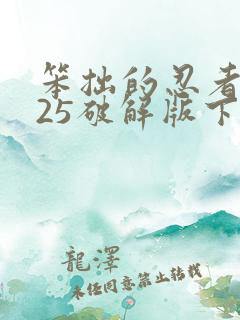 笨拙的忍者
25破解版下
龍澤
未任同意禁止转载